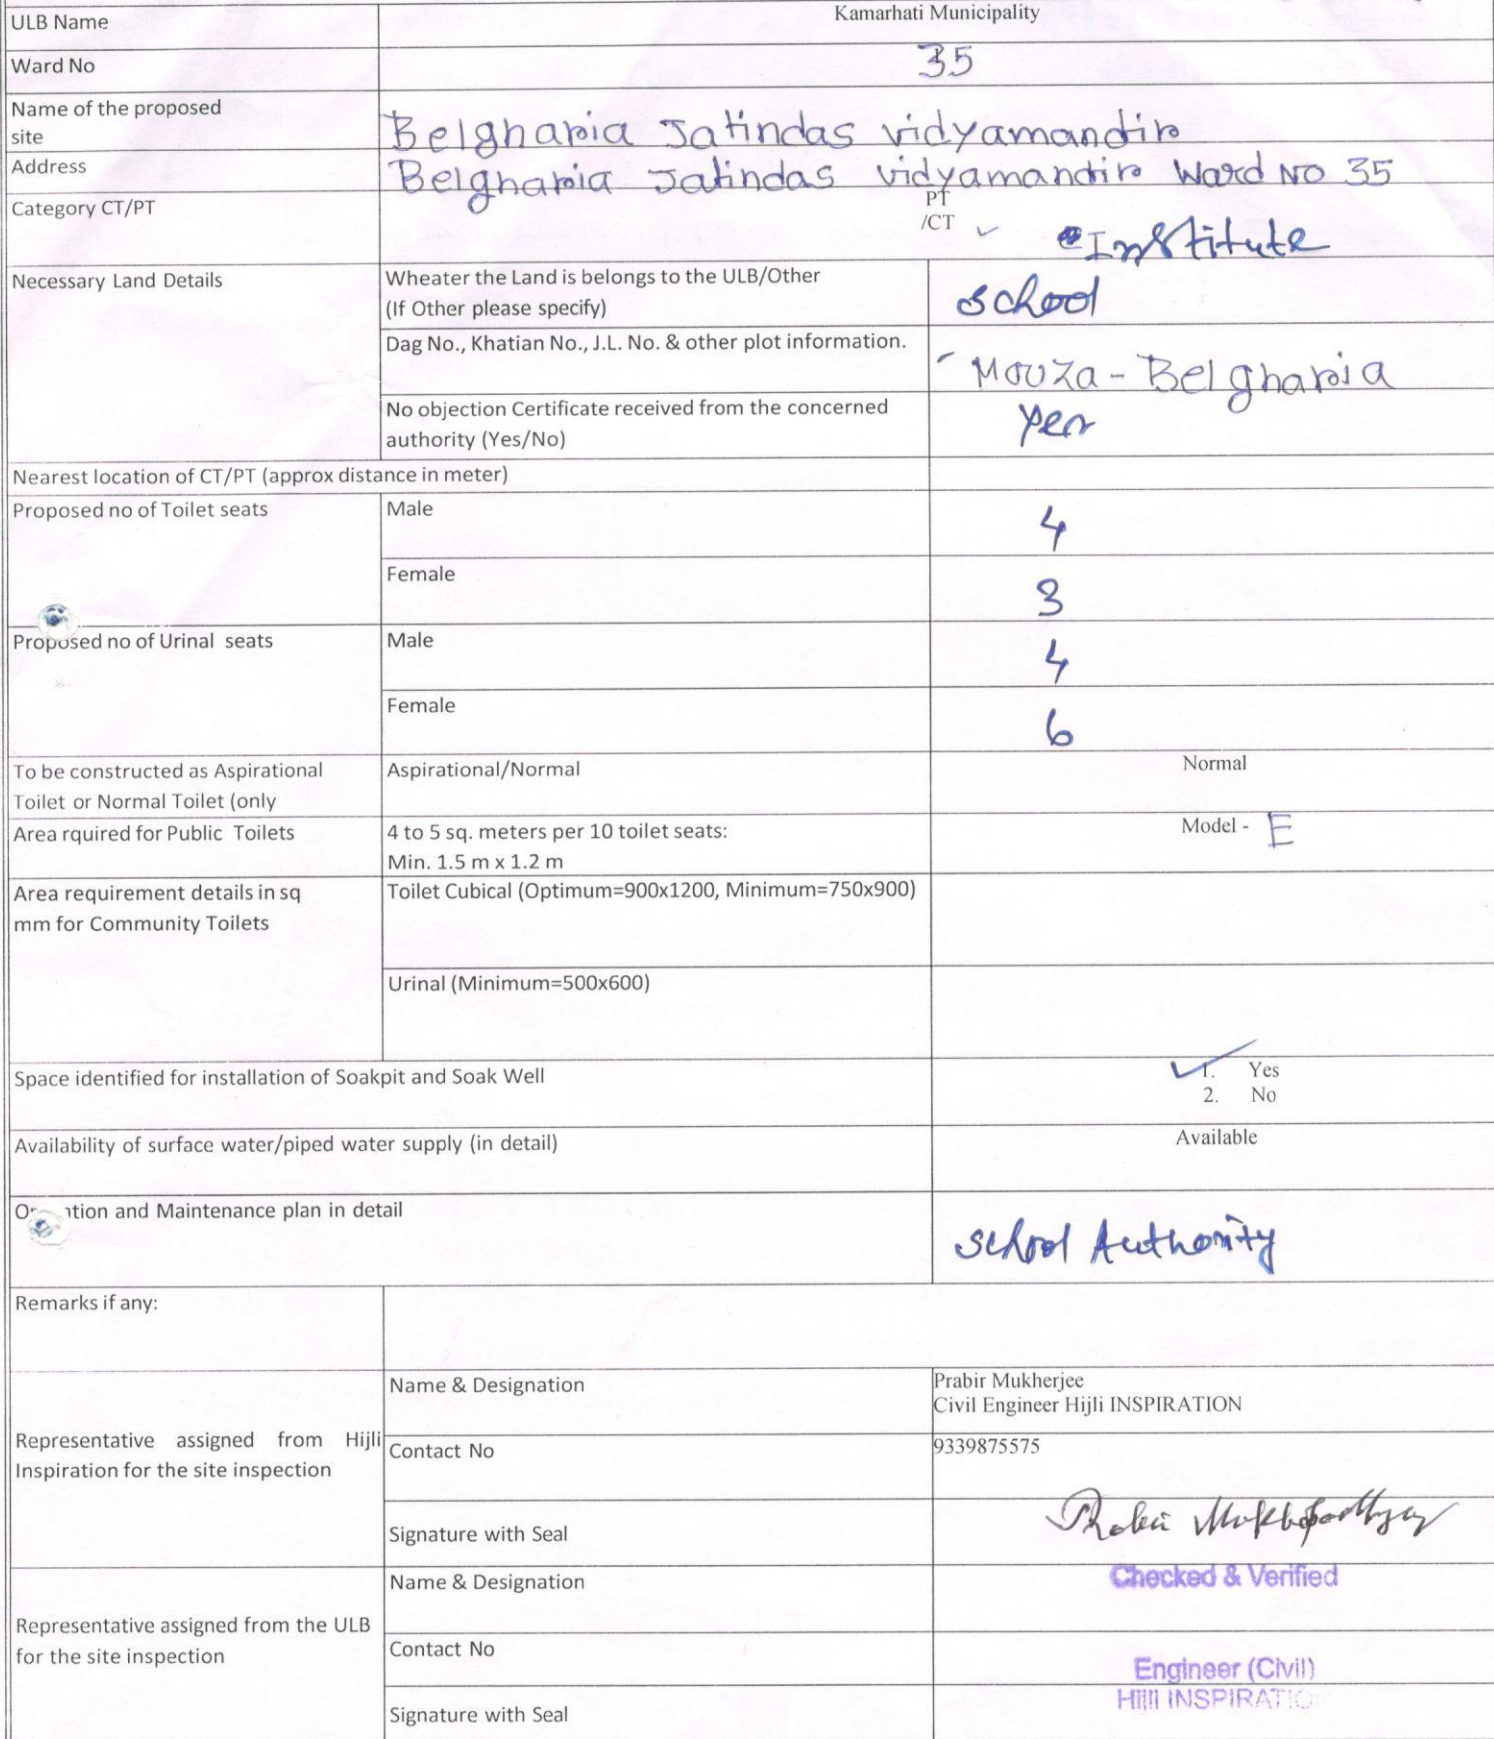 ULB Name
Kamarhati Municipality
Ward No
35
Name of the proposed
site
Belgharia Jatindas vidyamandir
Address
Belgharia Jatindas vidyamandir Ward No 35
Category CT/PT
PT
/CT ✓
Institute
Necessary Land Details
Wheater the Land is belongs to the ULB/Other
(If Other please specify)
school
Dag No., Khatian No., J.L. No. & other plot information.
Mouza - Belgharia
No objection Certificate received from the concerned
authority (Yes/No)
Yes
Nearest location of CT/PT (approx distance in meter)
Proposed no of Toilet seats
Male
4
Female
3
Proposed no of Urinal seats
Male
4
Female
6
To be constructed as Aspirational
Toilet or Normal Toilet (only
Aspirational/Normal
Normal
Area rquired for Public Toilets
4 to 5 sq. meters per 10 toilet seats:
Min. 1.5 m x 1.2 m
Model - E
Area requirement details in sq
mm for Community Toilets
Toilet Cubical (Optimum=900x1200, Minimum=750x900)
Urinal (Minimum=500x600)
Space identified for installation of Soakpit and Soak Well
✓ 1. Yes
2. No
Availability of surface water/piped water supply (in detail)
Available
and Maintenance plan in detail
School Authority
Remarks if any:
Representative assigned from Hijli
Inspiration for the site inspection
Name & Designation
Prabir Mukherjee
Civil Engineer Hijli INSPIRATION
Contact No
9339875575
Signature with Seal
Checked & Verified
Representative assigned from the ULB
for the site inspection
Name & Designation
Contact No
Engineer (Civil)
Hijli INSPIRATIO
Signature with Seal